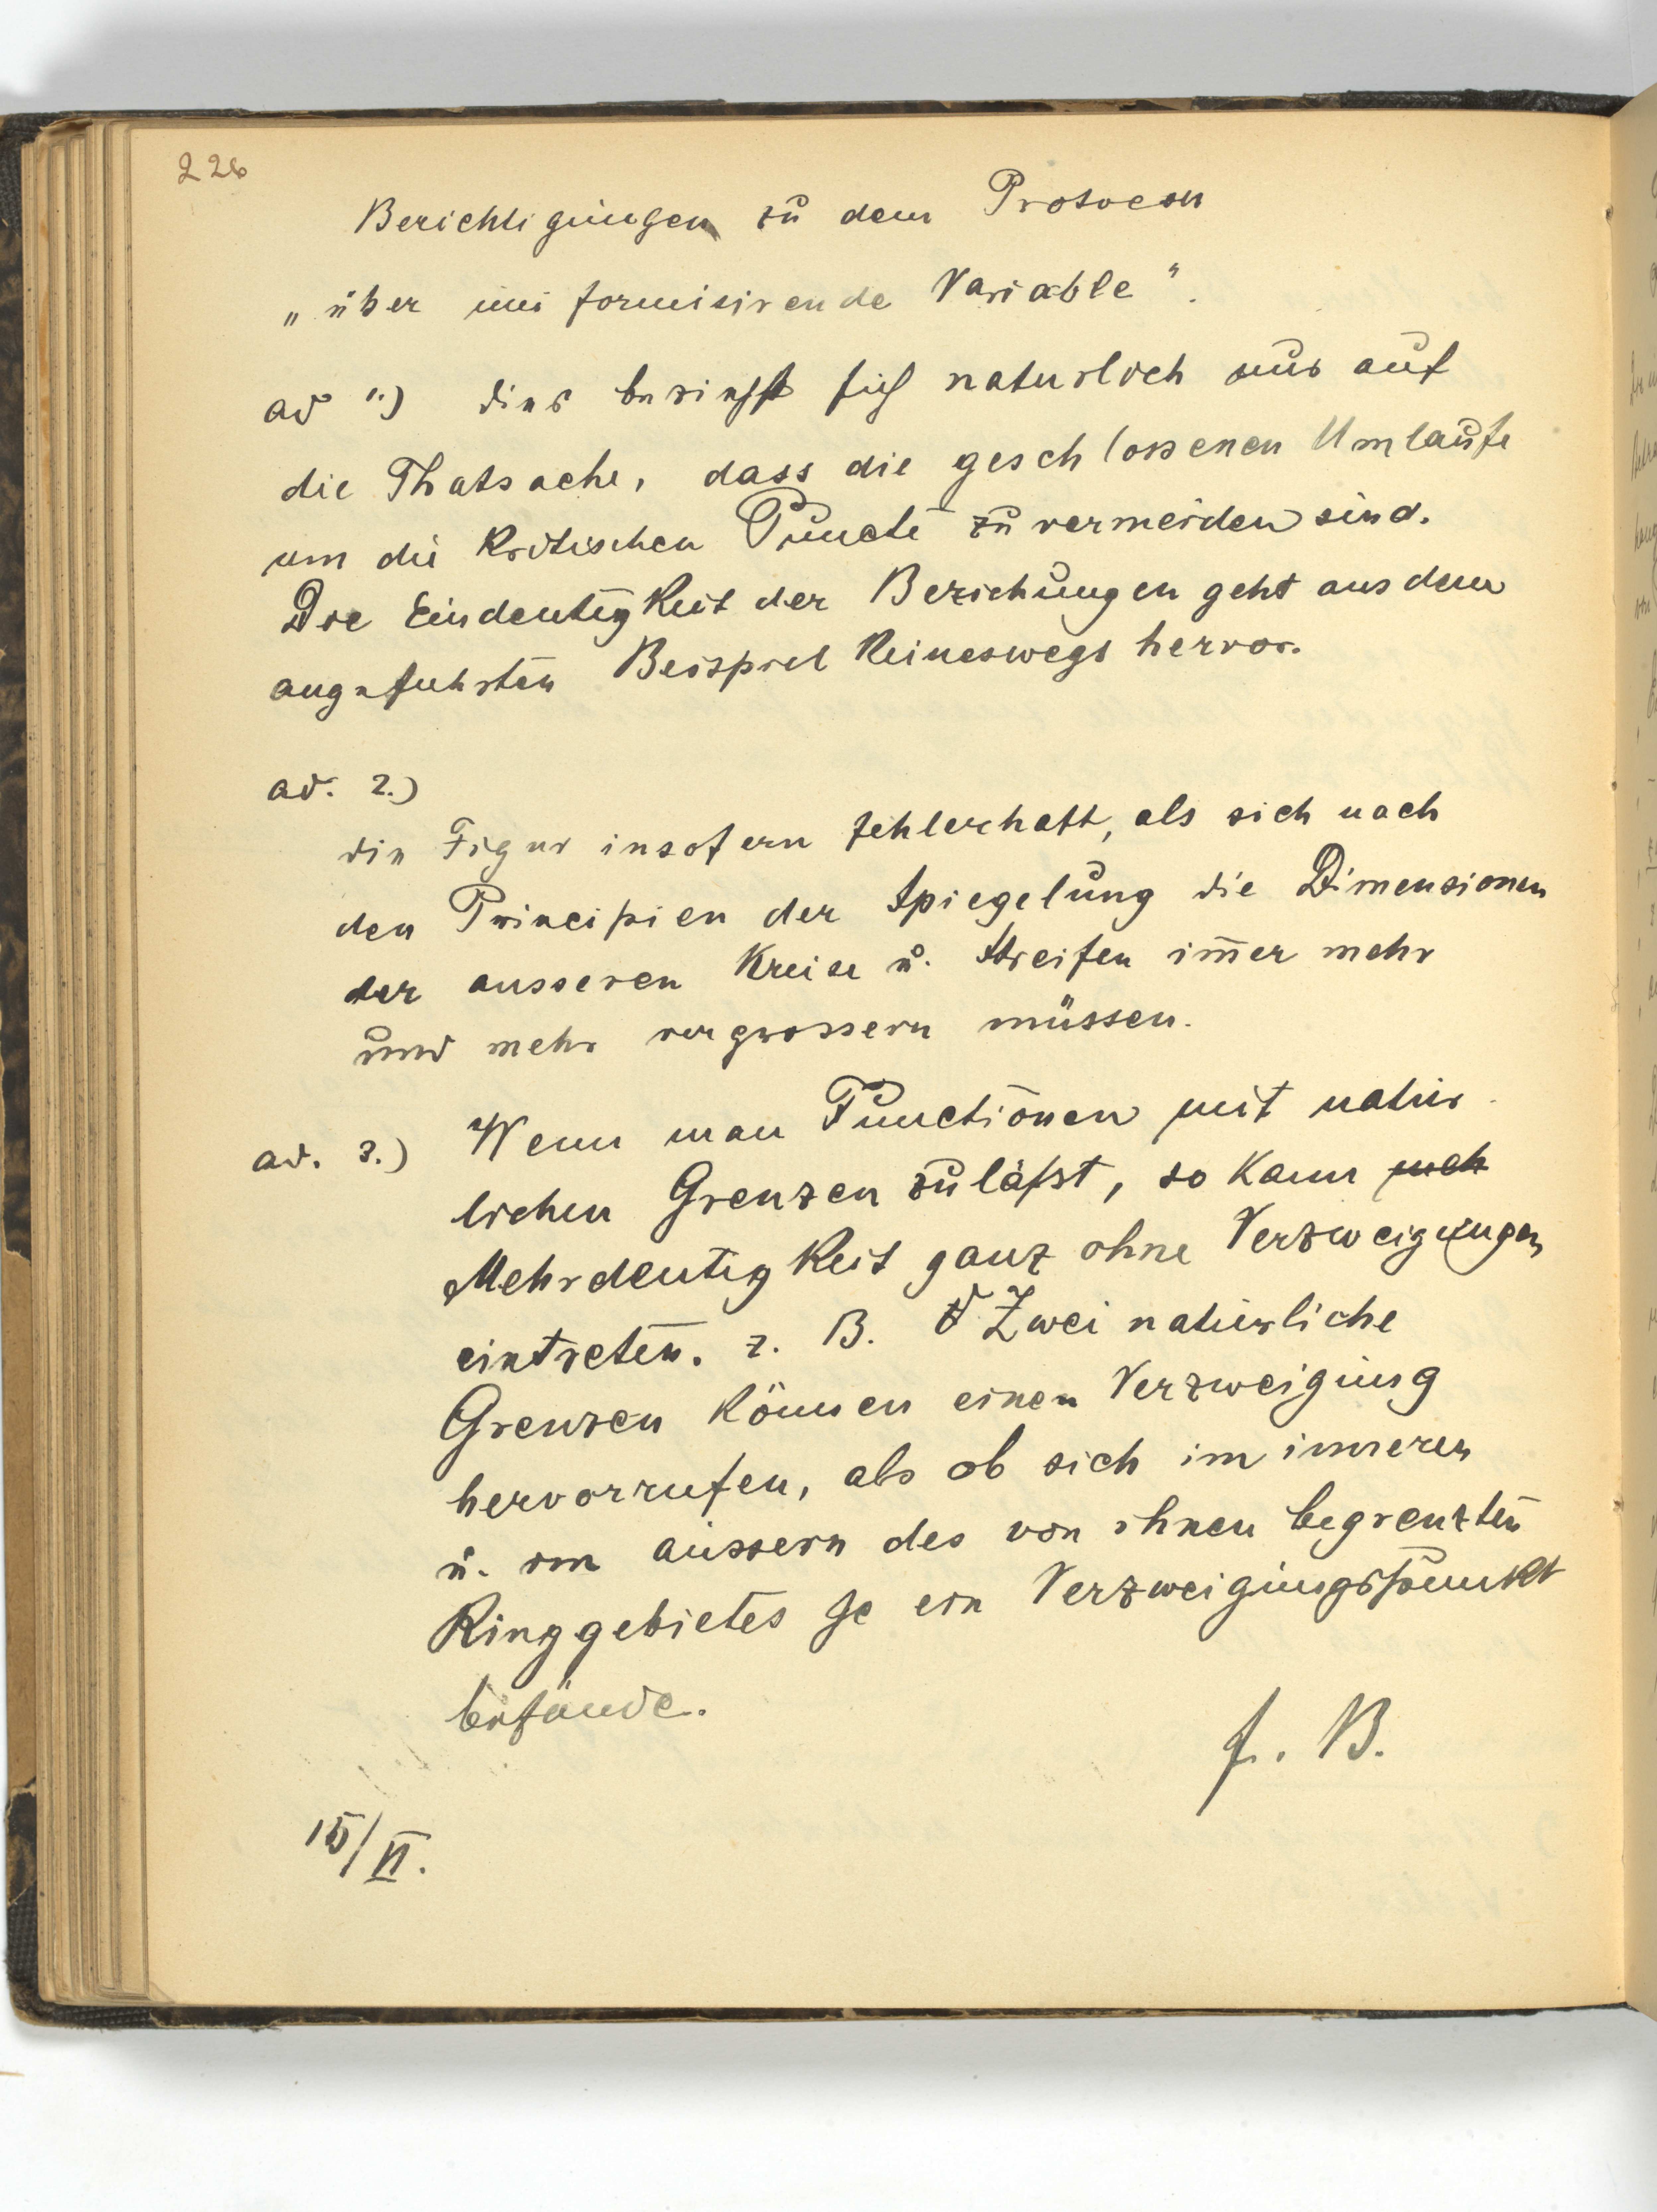 226
Berichtigungen zu dem Protocoll
„über uniformisirende Variable".
ad 1.) dies bezieht sich naturlich nur auf
die Thatsache, dass die geschlossenen Umlaufe
um die kritischen Puncte zu vermeiden sind.
Die Eindeutigkeit der Beziehungen geht aus dem
angefuhrten Beispiel keineswegs hervor.
ad. 2.)
die Figur insofern fehlerhaft, als sich nach
den Principien der Spiegelung die Dimensionen
der ausseren Kreise u. Streifen im̄er mehr
und mehr vergrossern müssen.
ad. 3.) Wenn man Functionen mit natür
lichen Grenzen zuläfst, so kann
Mehrdeutigkeit ganz ohne Verzweigungen
eintreten. z. B. Zwei natürliche
Grenzen können einen Verzweigung
hervorrufen, als ob sich im inneren
u. im äussern des von ihnen begrenzten
Ringgebietes je ein Verzweigungspunkt
befände.
f. B.
15/VI.